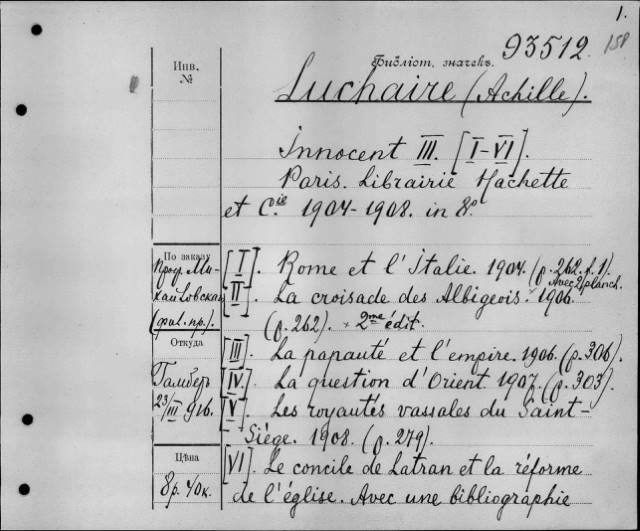 1.
93512. 158
Библіот. значекъ.
Инв.
№
Luchaire (Achille).
Innocent III. [I-VI].
Paris. Librairie Hachette
et C.ie 1904-1908. in 8º
По заказу
Проф. Ми-
хайловскаго
(фил. пр.).
[I]. Rome et l'Italie. 1904. (p. 262, f. 1).
Avec 2 planch.
[II]. La croisade des Albigeois. × 1906.
(p. 262). × 2me édit.
Откуда
[III]. La papauté et l'empire. 1906. (p. 306).
Гамберъ
[IV]. La question d'Orient. 1907. (p. 303).
23/III 916.
[V]. Les royautés vassales du Saint-
Siége. 1908. (p. 279).
Цѣна
8р. 40к.
[VI]. Le concile de Latran et la réforme
de l'église. Avec une bibliographie